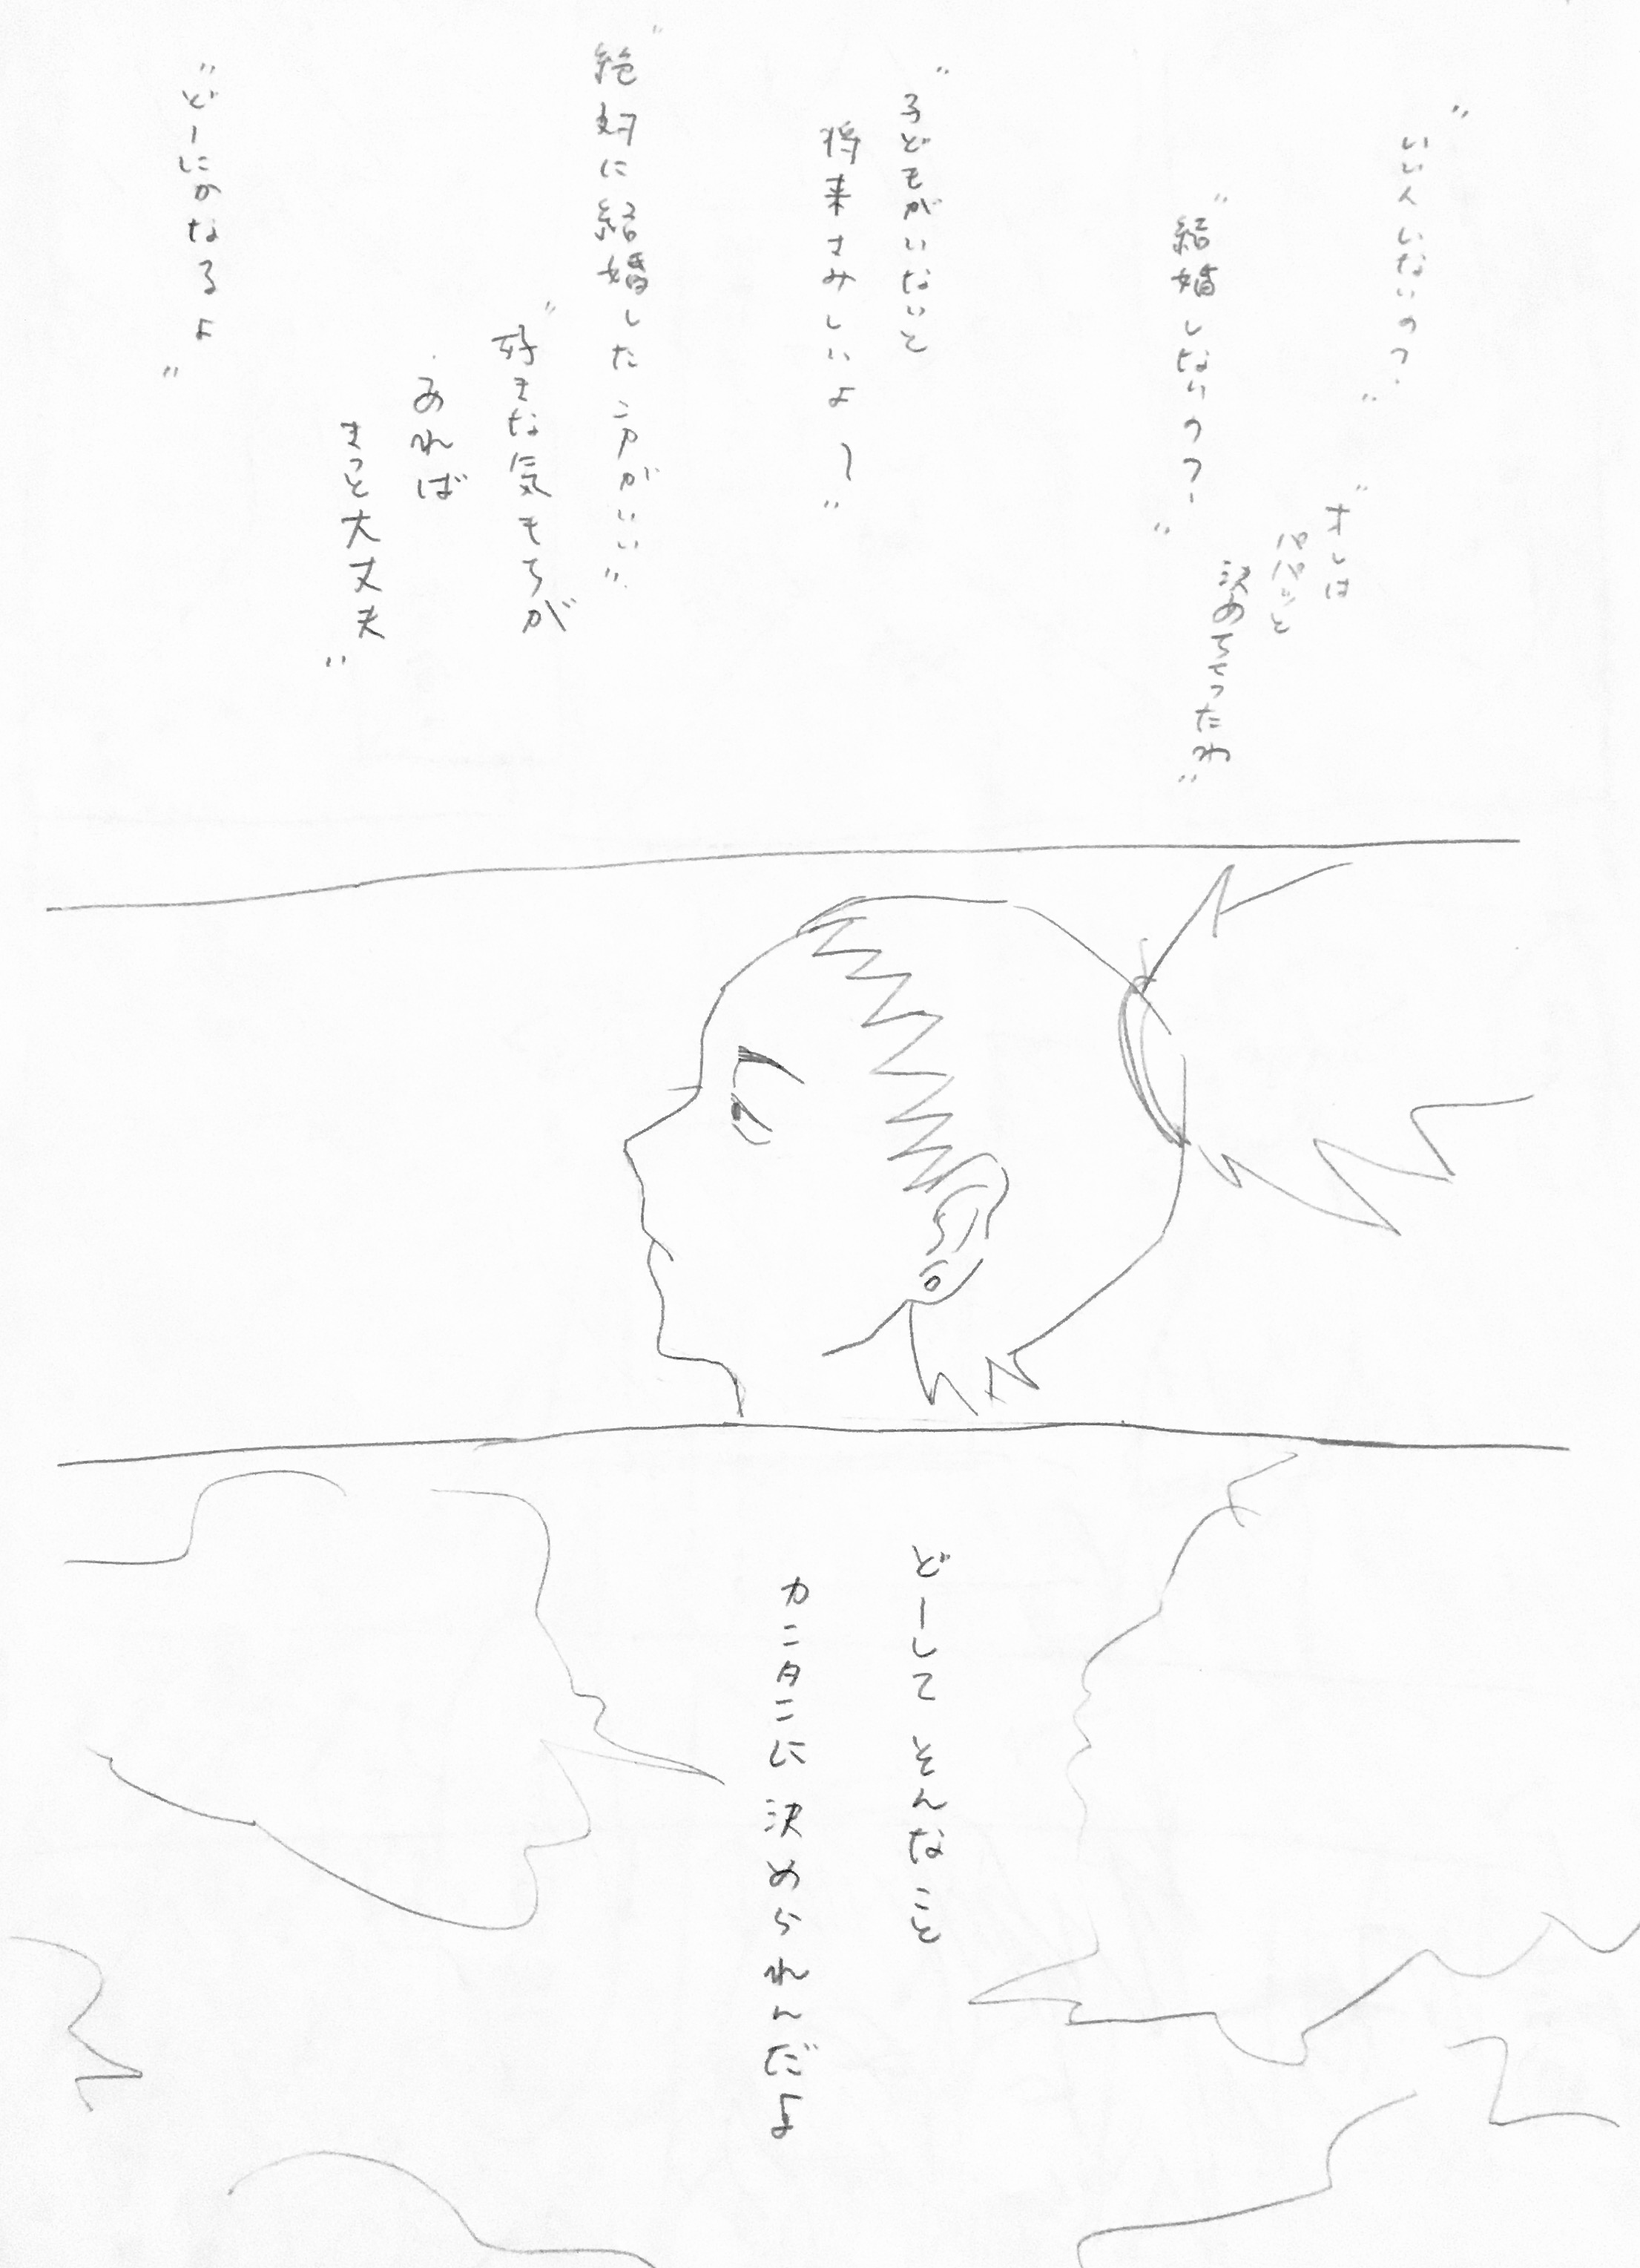 "いい人いないの?"
"オレは
パパッと
決めちゃったわ"
"結婚しないの?"
"子どもがいないと
将来さみしいよ〜"
"絶対に結婚した方がいい"
"好きな気もちが
あれば
きっと大丈夫"
"どーにかなるよ"
どーして そんなこと
カンタンに 決められんだよ